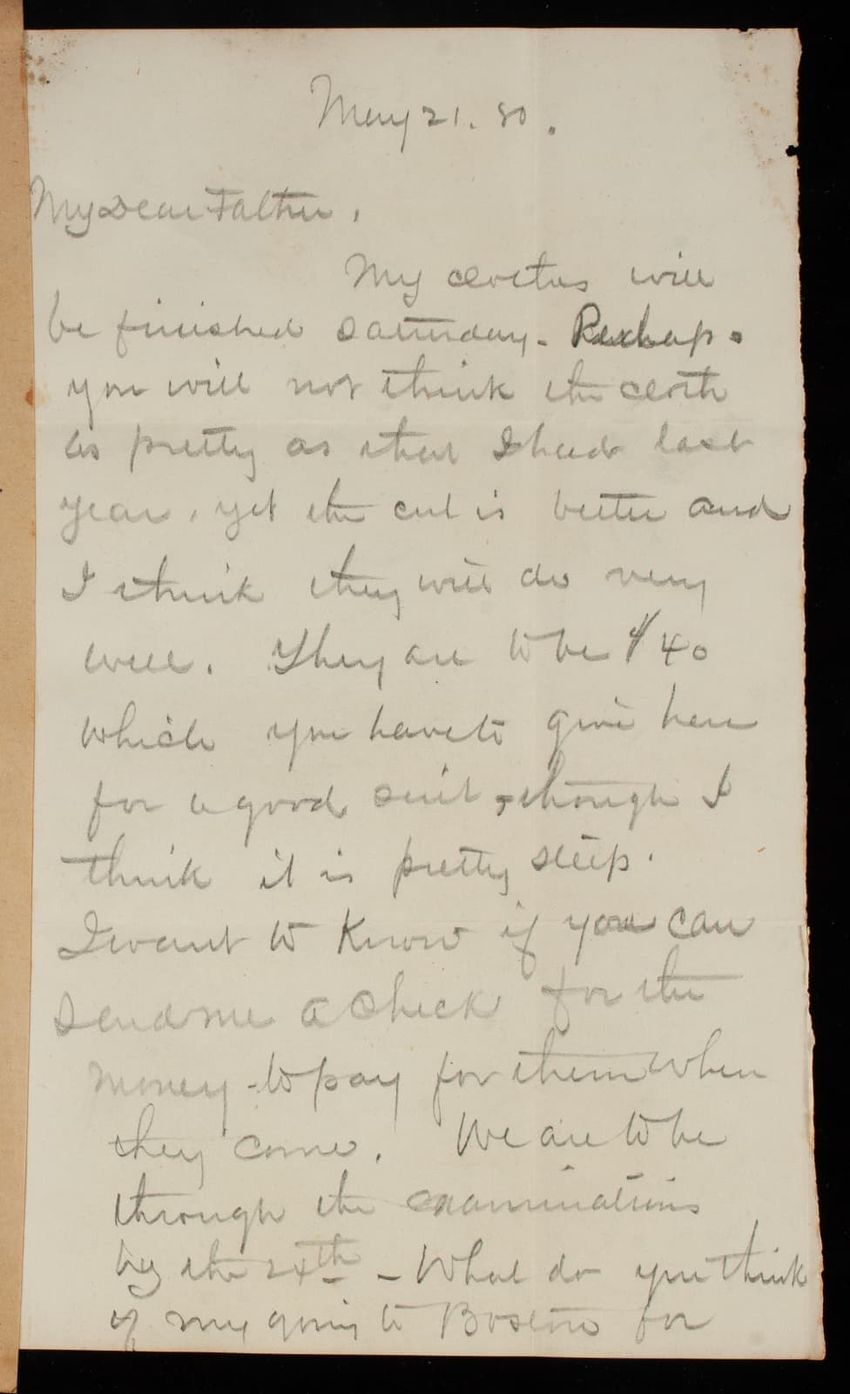 May 21. 80.
My Dear Father,
My clothes will
be finished Saturday. Perhaps
you will not think the cloth
as pretty as that I had last
year, yet the cut is better and
I think they will do very
well. They are to be $40
which you have to give here
for a good suit, though I
think it is pretty steep.
I want to know if you can
send me a check for the
money to pay for them when
they come. We are to be
through the examinations
by the th - What do you think
of my going to Boston for